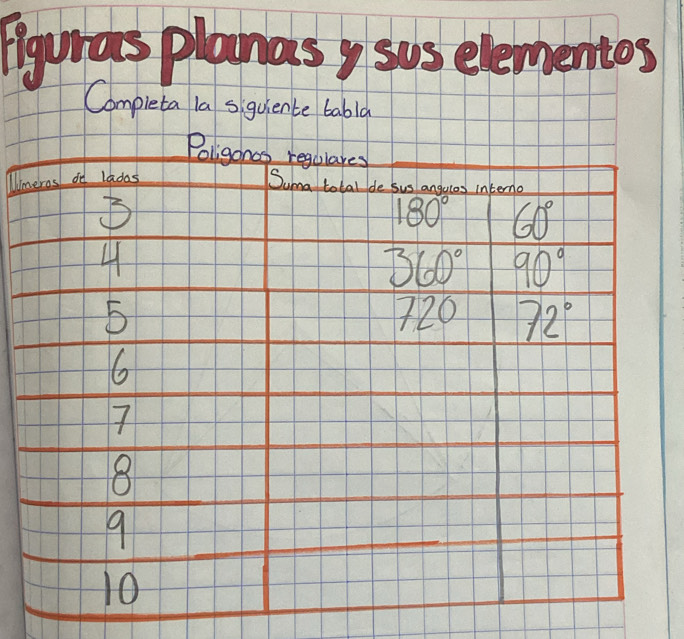 Figuras planas y sus elementos
Completa la siguiente tabla
Poligonos regulares
Números de lados Suma total de sus angulos interno
3 180° 60°
4 360° 90°
5 720 72°
6
7
8
9
10